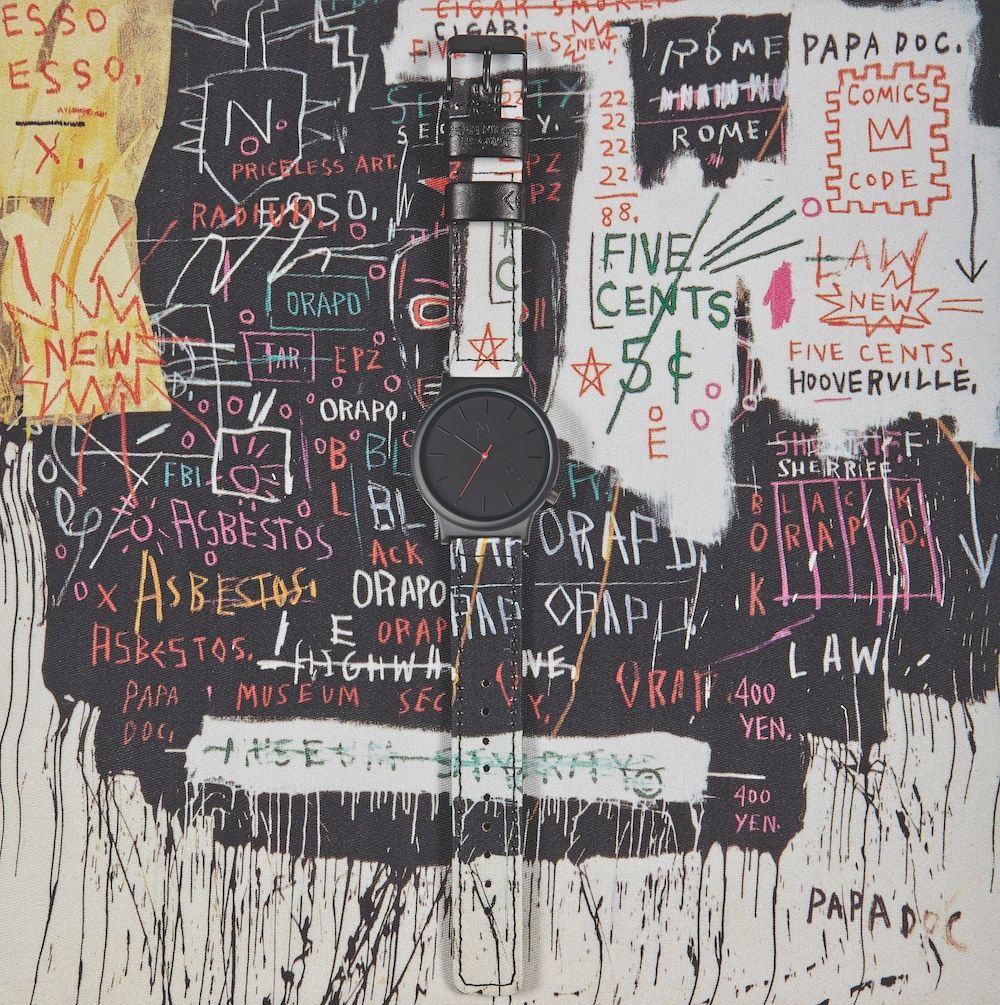 ESSO
ESSO,
X.
NEW
N
PRICELESS ART.
RADIUM
ESSO,
ORAPO
TAR
EPZ
ORAPO.
FBI
ASBESTOS
ASBESTOS.
X
ASBESTOS.
PAPA
DOC,
MUSEUM
SEC
Y.
CIGAR SMOKER
CIGAR:
NEW,
SEC
Y.
PZ
PZ
22
22
22
22
88.
ROME
ROME.
PAPA DOC.
COMICS
CODE
FIVE
CENTS
5¢
E
LAW
NEW
FIVE CENTS,
HOOVERVILLE,
SHERRIFF
SHERRIFF
BLACK
ORAPO.
K
B
L
BL
BL
ACK
ORAPO
E
ORAP
HIGHWA
ORAP
ORAP
ORAP
LAW
400
YEN.
400
YEN.
PAPA DOC